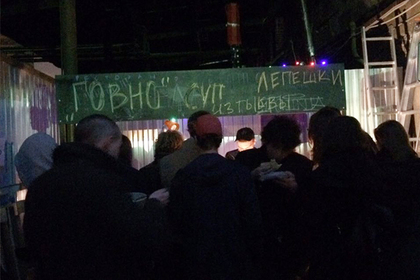 "ГОВНО" СУП ЛЕПЕШКИ
ИЗ ТЫКВЫ